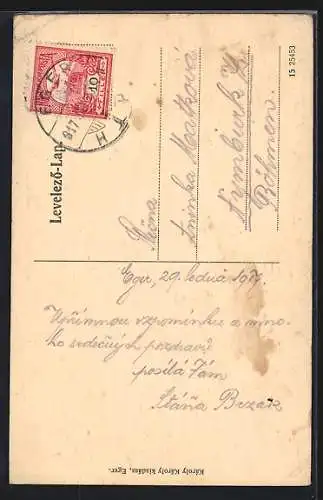 Levelező-Lap
10
EGER
15 25453
Slečna
Matková
Nymburk
Böhmen
Eger, 29. ledna 1917.
Upřímnou vzpomínku a mno-
ho srdečných pozdravů
posílá Vám
Stáňa Brzák
Károly Károly kiadása, Eger.